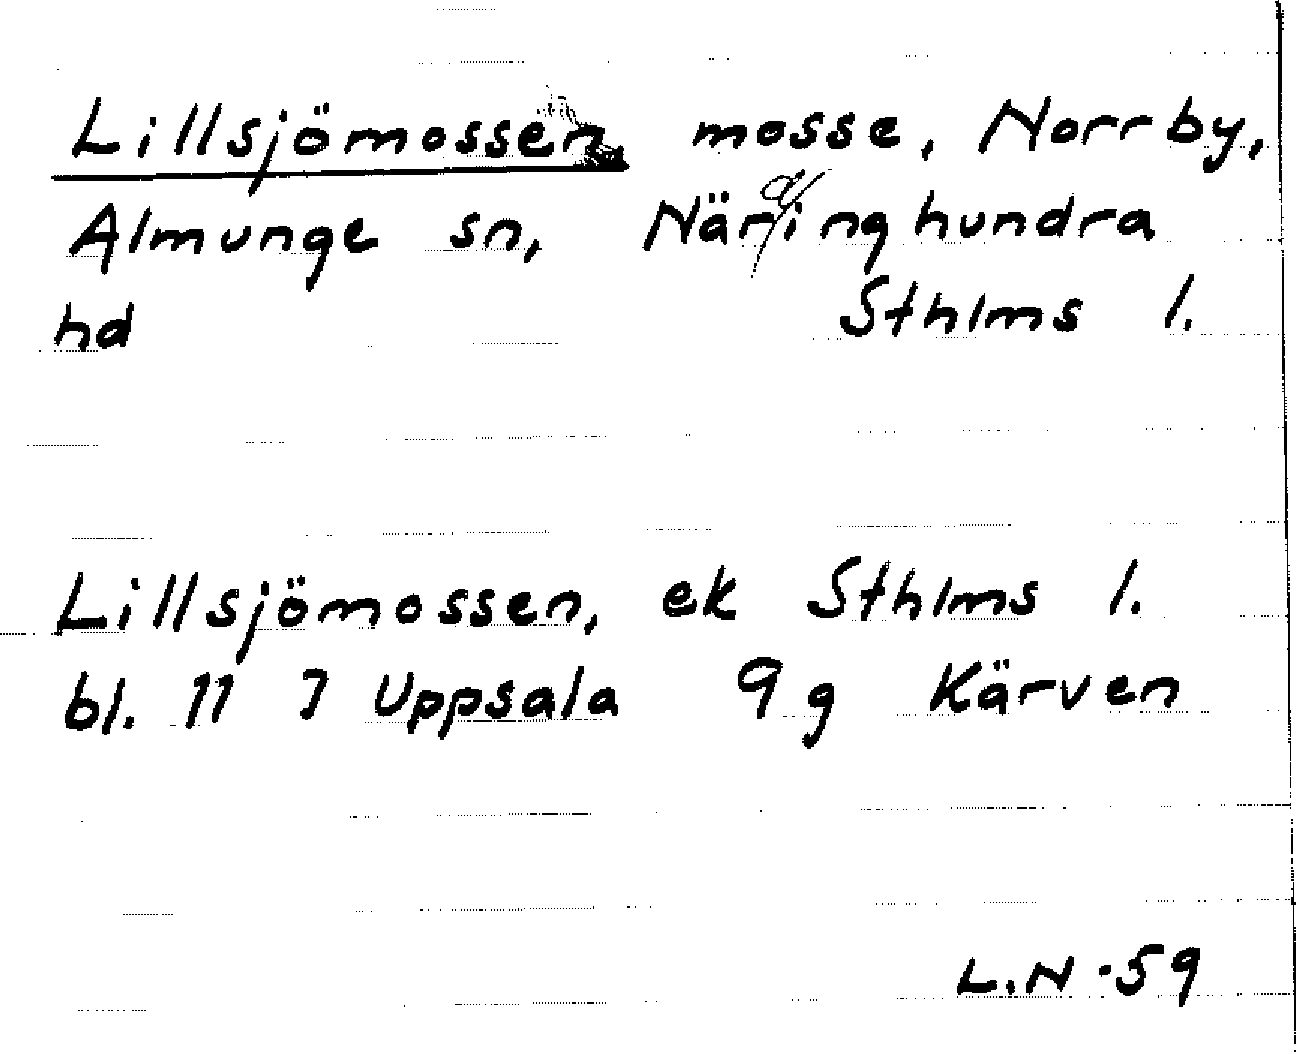 Lillsjömossen, mosse, Norrby,
Almunge sn, Närdinghundra
hd Sthlms l.
Lillsjömossen, ek Sthlms l.
bl. 11 J Uppsala 9 g Kärven
L.N -59